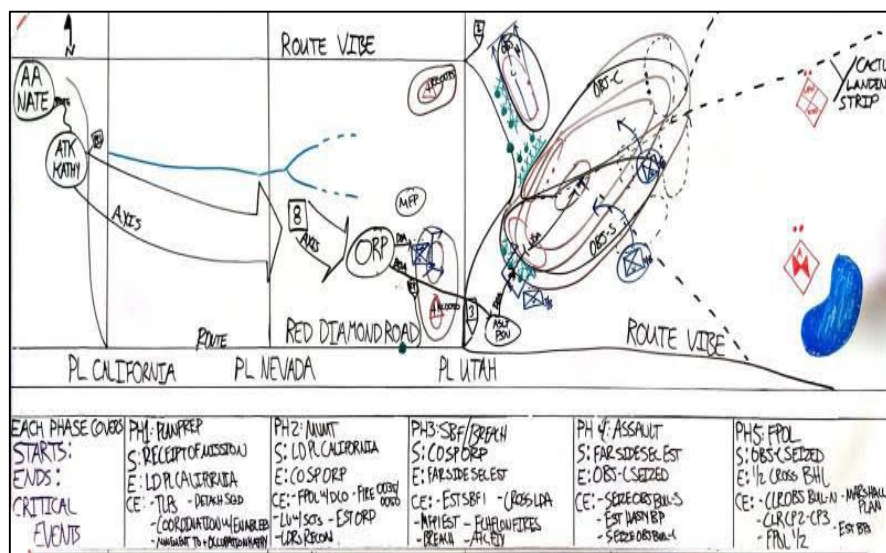 N
ROUTE VIBE
AA
NATE
ATK
KATHY
AXIS
8
AXIS
MFP
ORP
1
3
OBJ-C
OBJ-S
CACTUS
LANDING
STRIP
ROUTE
RED DIAMOND ROAD
ROUTE VIBE
PL CALIFORNIA
PL NEVADA
PL UTAH
EACH PHASE COVERS
STARTS:
ENDS:
CRITICAL
EVENTS
PH1: PLN/PREP
S: RECEIPT OF MISSION
E: LD PL CALIFORNIA
CE: - TLPS
- COORDINATION W/ ENABLERS
PH2: MVMT
S: LD PL CALIFORNIA
E: CO SP ORP
CE: - FPOL W/ DLO
- EST ORP
- LDRS RECON
PH3: SBF/BREACH
S: CO SP ORP
E: FARSIDE SEL EST
CE: - EST SBF1 - CROSS LDA
- BREACH
PH4: ASSAULT
S: FARSIDE SEL EST
E: OBJ-C SEIZED
CE: - SEIZE OBJ BUL-S
- EST HASTY BP
- SEIZE OBJ BUL-C
PH5: FPOL
S: OBJ-C SEIZED
E: 1/2 CROSS BHL
CE: - CLR OBJ BUL-N - MARSHALL
PLAN
- CLR CP2-CP3
- FPOL 1/2